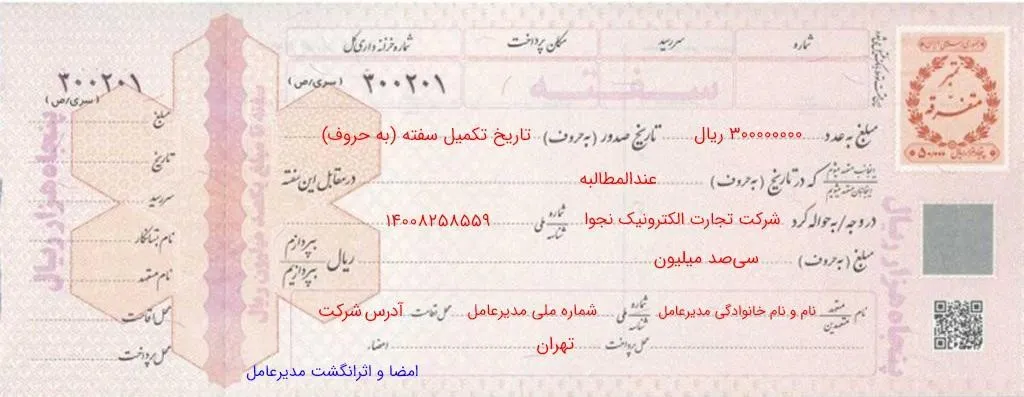 شماره سررسید مکان پرداخت شماره خزنه داری کل
سفته
(سری/ص) ۳۰۰۲۰۱
(سری/ص) ۳۰۰۲۰۱
تمبر
متفرقه
۵۰،۰۰۰
مبلغ به عدد ۳۰۰۰۰۰۰۰۰ ریال تاریخ صدور (به حروف) تاریخ تکمیل سفته (به حروف)
که در تاریخ (به حروف) عندالمطالبه در مقابل این سفته
در وجه/به حواله کرد شرکت تجارت الکترونیک نجوا شماره/شناسه ملی ۱۴۰۰۸۲۵۸۵۵۹ بپردازم
مبلغ (به حروف) سی‌صد میلیون ریال بپردازیم
نام متعهد/متعهدین نام و نام خانوادگی مدیرعامل شماره/شناسه ملی شماره ملی مدیرعامل محل اقامت آدرس شرکت
محل پرداخت تهران امضاء
امضا و اثرانگشت مدیرعامل
مبلغ
تاریخ
سررسید
نام بستانکار
نام متعهد
محل اقامت
محل پرداخت
پنجاه هزار ریال
پنجاه هزار ریال